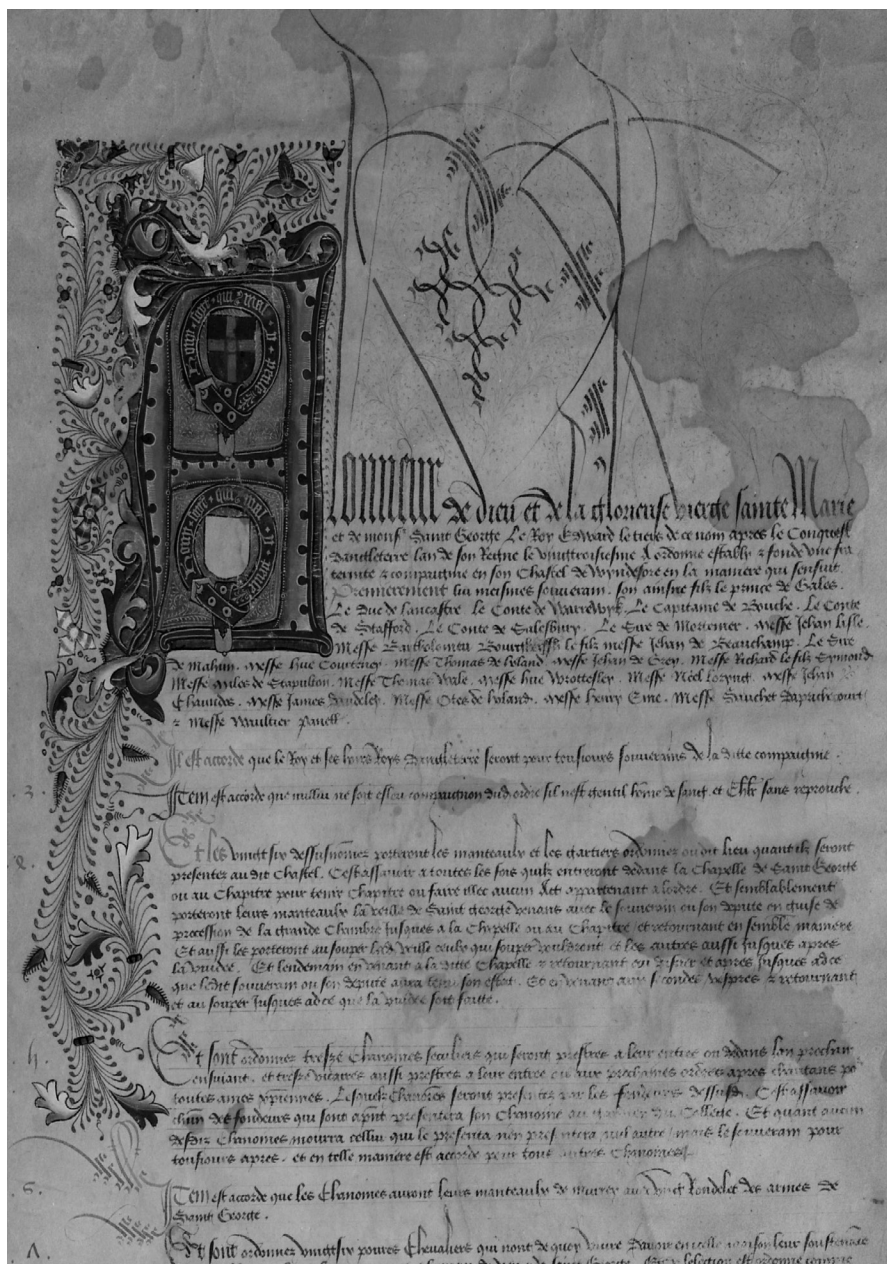 hony soyt qui mal y pense
hony soyt qui mal y pense
lonneur de dieu et de la glorieuse vierge sainte Marie
et de mons Saint George Le Roy Edward le tiers de ce nom apres le Conquest
dangleterre lan de son Regne le vingttroisiesme A ordonne estably z fonde vne fra
ternite z compaignie en son Chastel de Wyndesore en la maniere qui sensuit
Premierement lui meismes souverain. son aisne filz le prince de Gales.
Le Duc de lancastre le Conte de Warrewyk. Le Capitaine de Bouche. Le Conte
de Stafford. Le Conte de Salesbury. Le Sire de Mortemer. Messe Jehan lisle
Messe Bartholomeu le filz messe Jehan de Beauchamp. Le Sire
de Mahun. Messe Hue Courteney. Messe Thomas de holand. Messe Jehan de Grey. Messe Richard le filz Symond
Messe Miles de Stapulton. Messe Thomas Wale. Messe hue Wrottesley. Messe Neel Loryng. Messe Jehan
Chandos. Messe James Daudeley. Messe Otes de holand. Messe henry Eme. Messe Sanchet
z Messe Waultier Panell.
Il est accorde que le Roy et ses hoirs Roys Dangleterre seront pour tousiours souverains de la ditte compaignie.
.3. ITEM est accorde que nullui ne soit esleu compaignon dud ordre sil nest gentil home de sang. et Chlr sans reprouche.
2. Et les vingtsix dessusnomez porteront les manteaulx et les gartiers ordonnez oudit lieu quant ilz seront
presenter au dit Chastel. Cestassavoir a toutes les fois quilz entreront dedans la Chapelle de Saint George
ou au Chapitre pour tenir Chapitre ou faire illec aucun Act appartenant a lordre. Et semblablement
porteront leurs manteaulx la veille de Saint george venans avec le souverain ou son depute en guise de
procession de la grande Chambre Jusques a la Chapelle ou au Chapitre et retournant en semble maniere
Et aussi les porteront au souper lad veille ceulx qui souper vouldront et les autres aussi Jusques apres
la vuidee. Et lendemain en venant a la ditte Chapelle z retournant en disner et apres Jusques adce
que ledit souverain ou son depute aura tenu son estat. Et en venant aux secondes vespres z retournant
et au souper Jusques adce que la vuidee soit faitte.
4. Et sont ordonnez tresze Chanoines seculiers qui seront prestres a leur entree ou dedans lan prochain
ensuiant. et tresze vicaires aussi prestres a leur entree ou aux prochaines ordres apres chantans po
toutes ames xpiennes. Lesquelz Chanoines seront presentez par les fondeurs dessusd. Cestassavoir
chun des fondeurs qui sont apnt presentera son Chanoine au du College. Et quant aucun
desdiz Chanoines mourra cellui qui le presenta nen presentera nul autre. mais le souverain pour
tousiours apres. et en telle maniere est accorde pour tous autres Chanoines.
.5. ITEM est accorde que les Chanoines auront leurs manteaulx de murrey avec vng Rondelet des armes de
Saint George.
Et sont ordonnez vingtsix poures Chevaliers qui nont de quoy vivre Davoir en celle maison leur soustenance